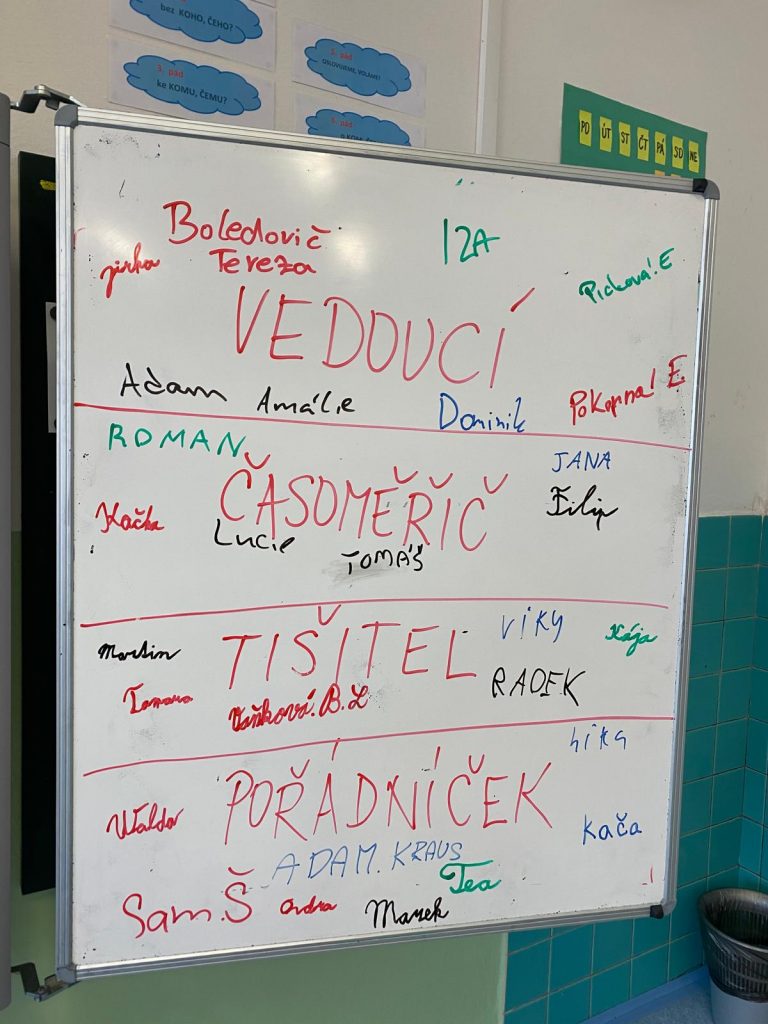 bez KOHO, ČEHO?
3. pád
ke KOMU, ČEMU?
5. pád
OSLOVUJEME, VOLÁME!
PO ÚT ST ČT PÁ SO NE
Boledovič
Tereza
jirka
IZA
Picková! E
VEDOUCÍ
Adam
Amálie
Dominik
Pokorna! E
ROMAN
JANA
ČASOMĚŘIČ
Kačka
Filip
Lucie
TOMÁŠ
Martin
TIŠITEL
VIKY
Kája
Tamara
B. L
RADEK
POŘÁDNÍČEK
Kača
ADAM. KRAUS
Tea
Sam.Š
Ondra
Marek